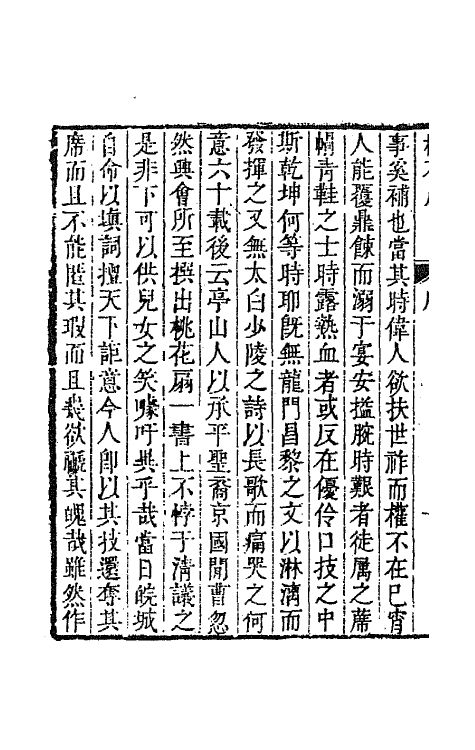 事奚補也當其時偉人欲扶世祚而權不在已宵
人能覆鼎餗而溺于宴安搤腕時艱者徒屬之蓆
帽青鞋之士時露熱血者或反在優伶口技之中
斯乾坤何等時耶旣無龍門昌黎之文以淋漓而
發揮之又無太白少陵之詩以長歌而痛哭之何
意六十載後云亭山人以承平聖裔京國閒曹忽
然興會所至撰出桃花扇一書上不悖于清議之
是非下可以供兒女之笑噱吁異乎哉當日皖城
自命以塡詞擅天下詎意今人卽以其技還奪其
席而且不能匿其瑕而且幾欲褫其魄哉雖然作